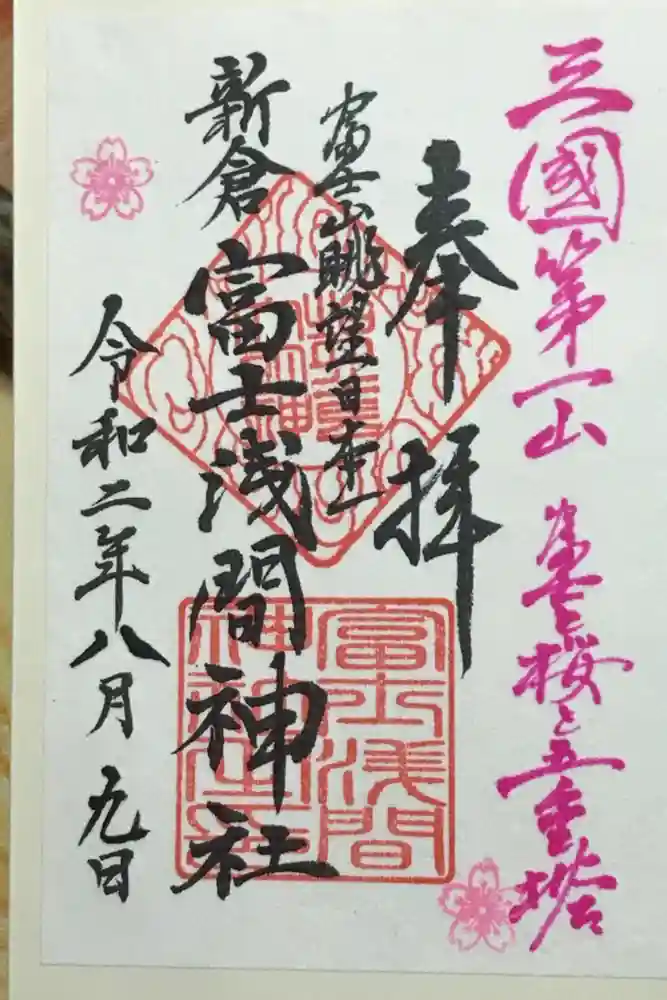 三國第一山
富士と桜と五重塔
奉拝
富士山眺望日本一
新倉
富士浅間神社
令和二年八月九日
富士浅間
神社